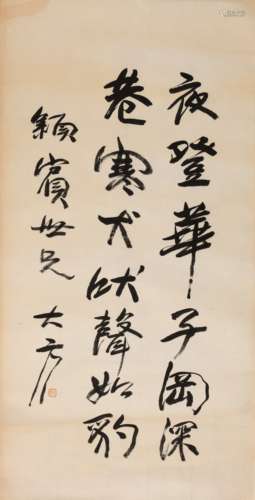 夜登華子岡深
巷寒犬吠聲如豹
穎賓世兄 大方